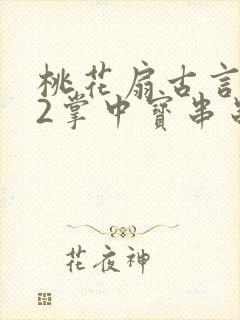 桃花扇古言
2掌中寳串
花夜神